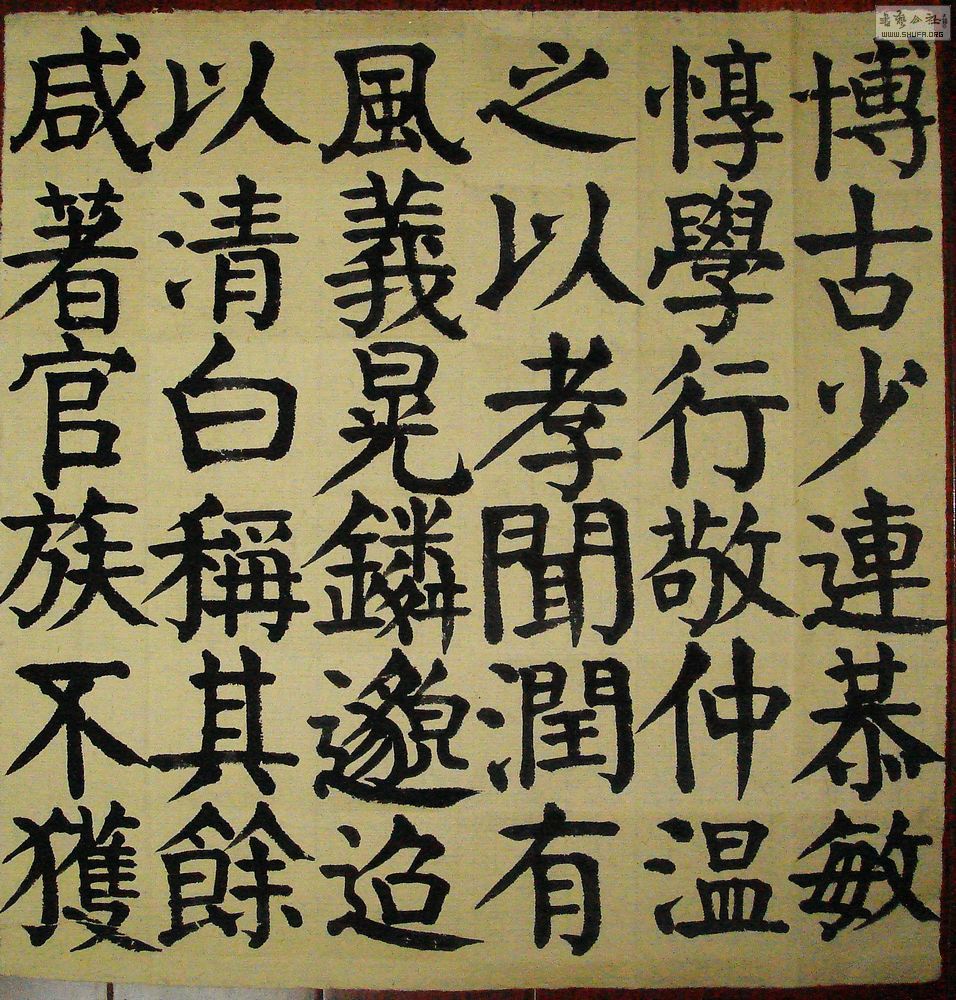 博古少連恭敏
惇學行敬仲温
之以孝聞潤有
風義晃鏻邈迢
以清白稱其餘
咸著官族不獲
WWW.SHUFA.ORG